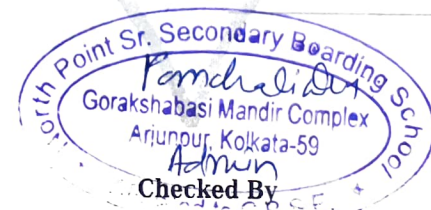 North Point Sr. Secondary Boarding School
Gorakshabasi Mandir Complex
Arjunpur, Kolkata-59
Admin
Checked By